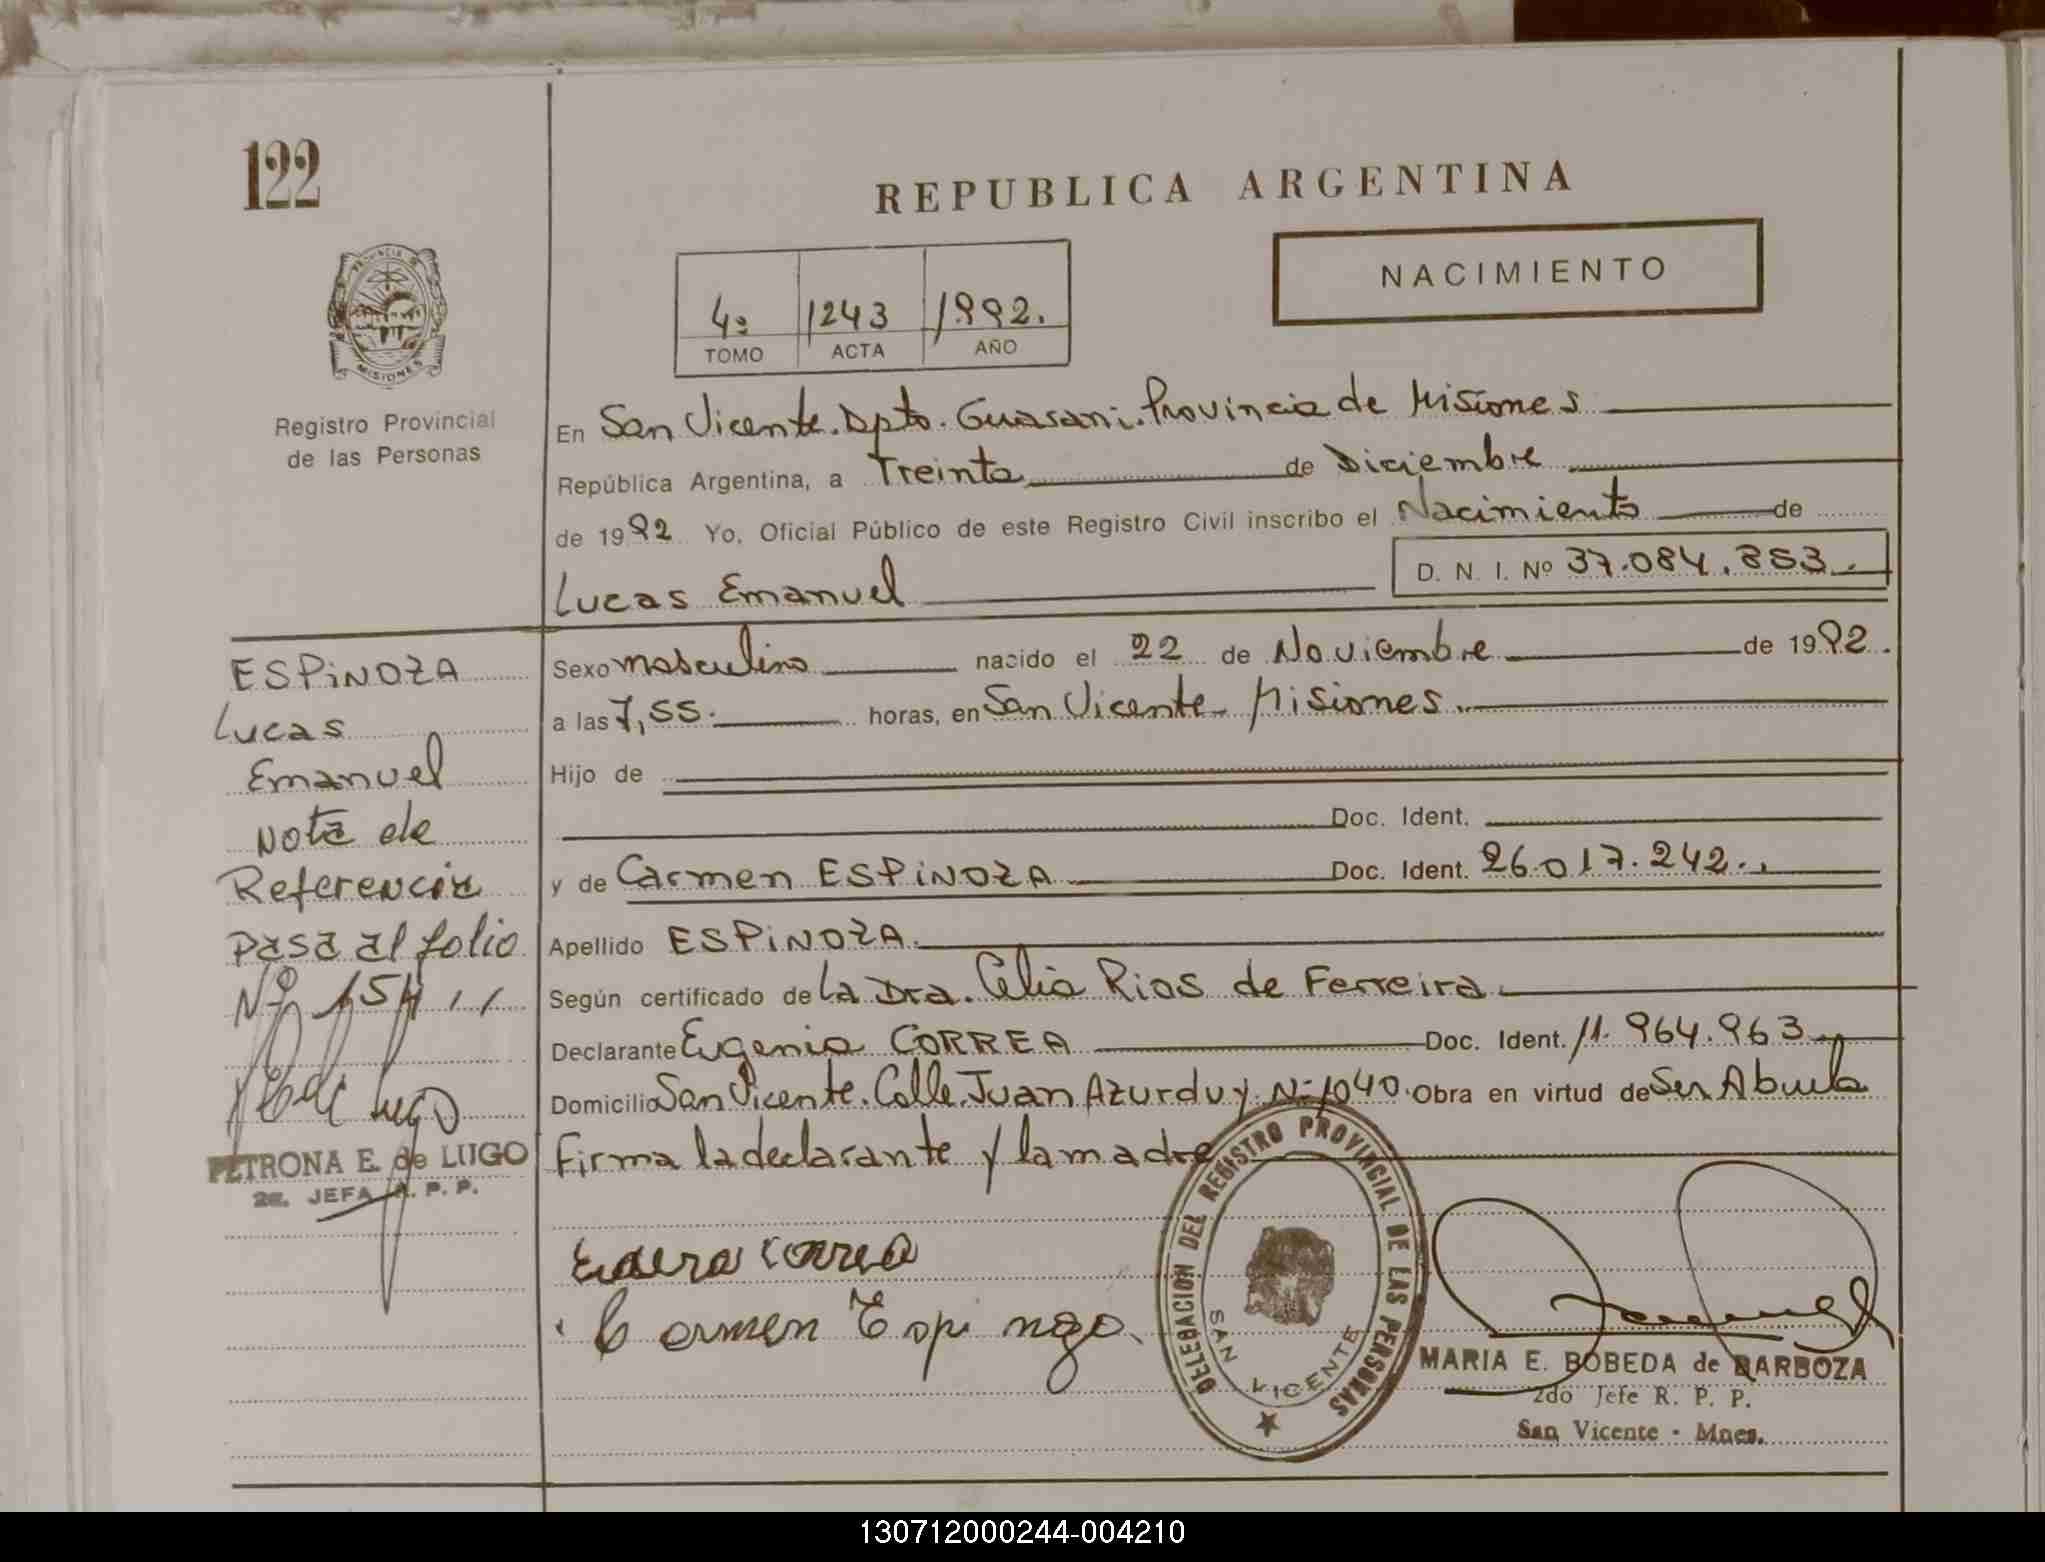 122
REPUBLICA ARGENTINA
NACIMIENTO
4º 1243 1992.
TOMO ACTA AÑO
PROVINCIA DE MISIONES
Registro Provincial
de las Personas
En San Vicente. Dpto. Guarani. Provincia de Misiones
República Argentina, a Treinta de Diciembre
de 1992 Yo, Oficial Público de este Registro Civil inscribo el Nacimiento de
D. N. I. Nº 37.084.853.
Lucas Emanuel
ESPINOZA
Lucas
Emanuel
Nota de
Referencia
pasa al folio
Nº 154
PETRONA E. de LUGO
2a. JEFA R. P. P.
Sexo masculino nacido el 22 de Noviembre de 1992.
a las 7,55. horas, en San Vicente - Misiones.
Hijo de
Doc. Ident.
y de Carmen ESPINOZA Doc. Ident. 26.017.242.
Apellido ESPINOZA.
Según certificado de La Dra. Celia Rios de Ferreira.
Declarante Eugenia CORREA Doc. Ident. 11.964.963
Domicilio San Vicente. Calle Juan Azurduy Nº 1040. Obra en virtud de Ser Abuela
Firma la declarante y la madre
Correa
Carmen Espinoza.
DELEGACION DEL REGISTRO PROVINCIAL DE LAS PERSONAS
SAN VICENTE
MARIA E. BOBEDA de BARBOZA
2do Jefe R. P. P.
San Vicente - Mnes.
130712000244-004210